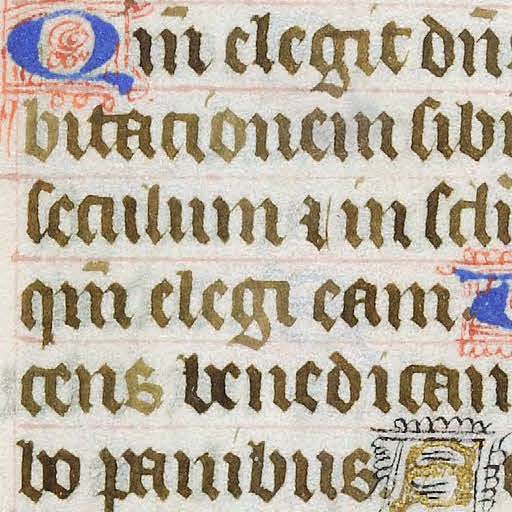 Qm̄ elegit dn̄s
bitacionem sibi
seculum ⁊ in scl̄i
qm̄ elegi eam
cens benedican
bo panibus A